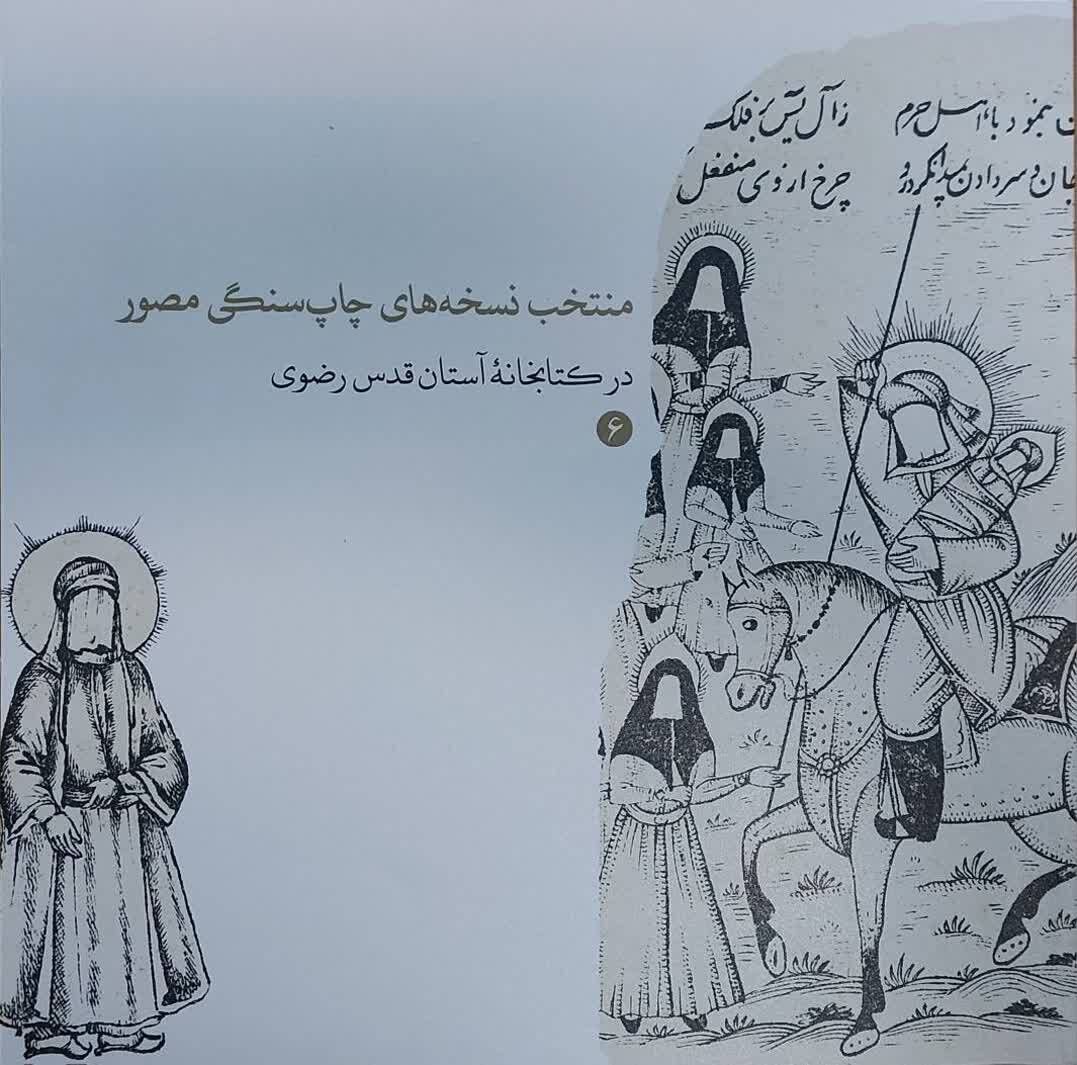 بنمود با اهل حرم زآل یس بر فلک
جان و سر دادن بمیدانگه در و چرخ از وی منفعل
منتخب نسخه‌های چاپ‌سنگی مصور
در کتابخانهٔ آستان قدس رضوی
۶